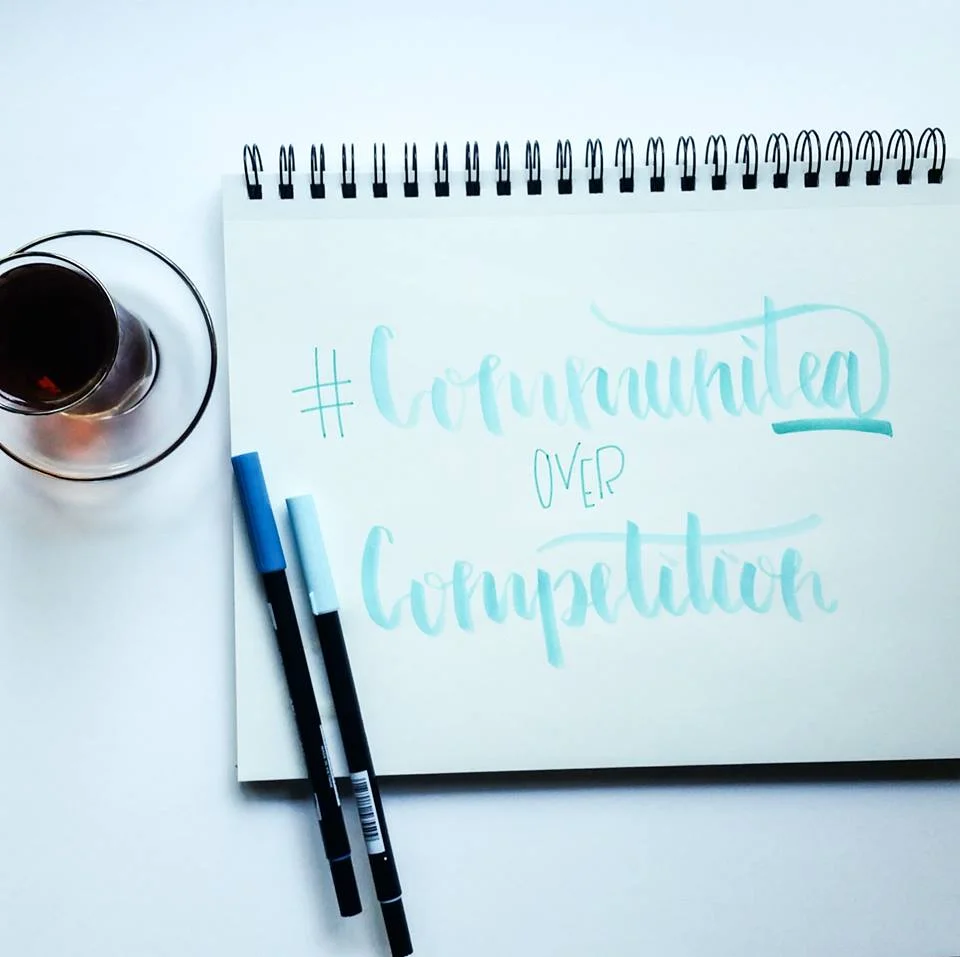 #Communitea
OVER
Competition